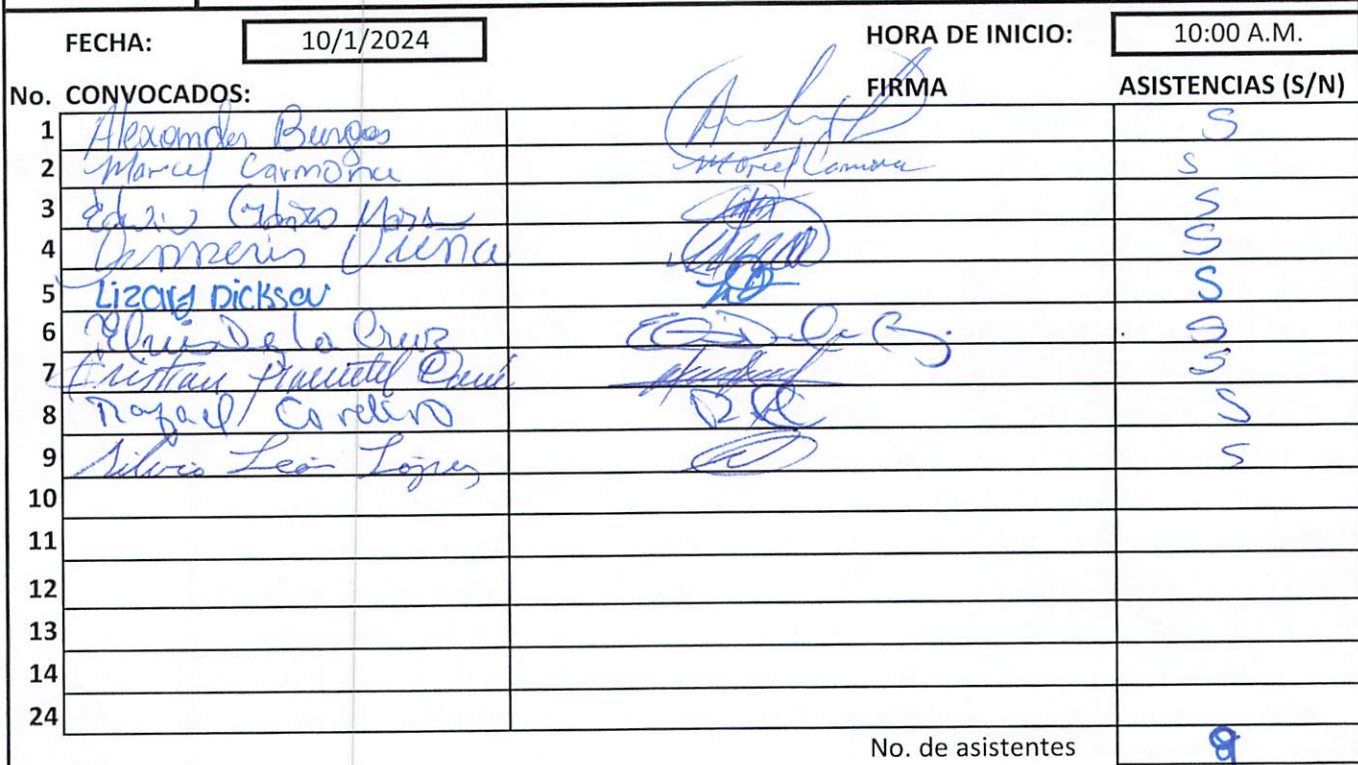 FECHA: 10/1/2024 HORA DE INICIO: 10:00 A.M.
No. CONVOCADOS: FIRMA ASISTENCIAS (S/N)
1 Alexander Burgos S
2 Marcel Carmona Marcel Carmona S
3 S
4 S
5 Lizard Dickson S
6 De la Cruz S
7 Cristian Pimentel S
8 Rafael Cordero S
9 Silvio León López S
10
11
12
13
14
24
No. de asistentes 9